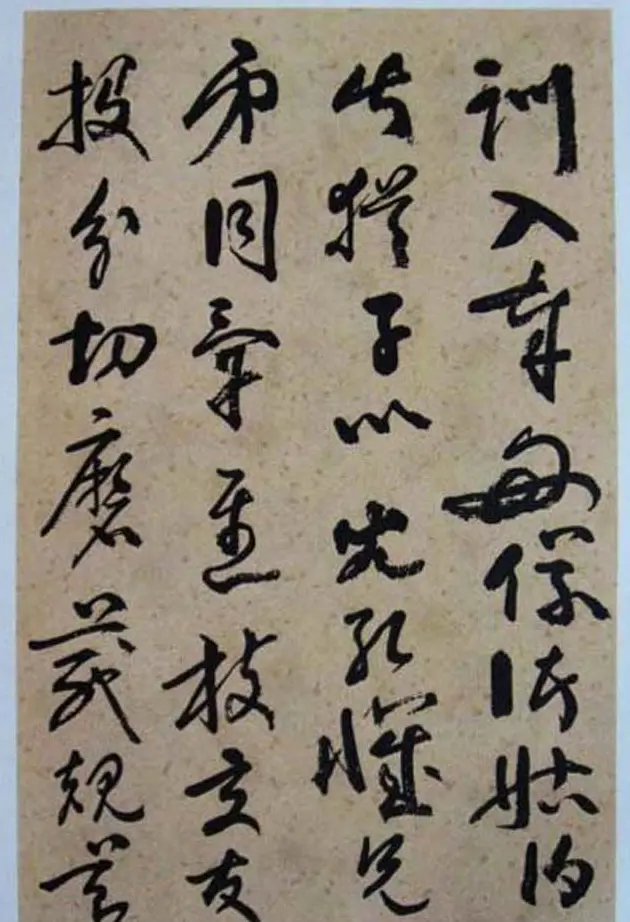 訓入奉母儀諸姑伯
叔猶子比兒孔懷兄
弟同氣連枝交友
投分切磨箴規